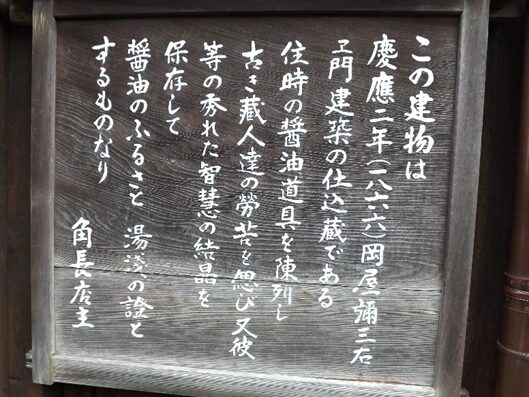 この建物は
慶應二年(一八六六)岡屋彌三右
ヱ門建築の仕込蔵である
往時の醤油道具を陳列し
古き藏人達の勞苦を偲び又彼
等の秀れた智慧の結晶を
保存して
醤油のふるさと 湯淺の證と
するものなり
角長店主